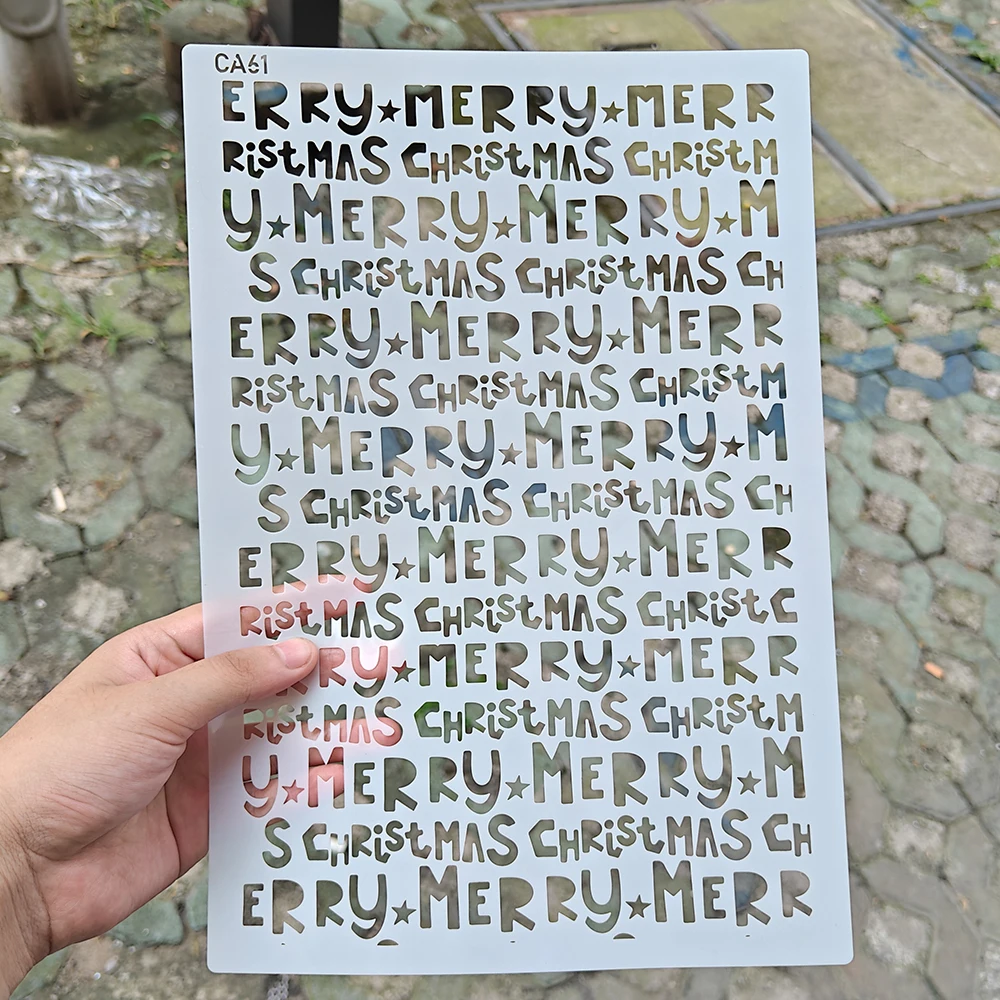 CA61
ERRY★MERRY★MERR
RiStMAS CHRiStMAS CHRiStM
Y★MERRY★MERRY★M
S CHRiStMAS CHRiStMAS CH
ERRY★MERRY★MERR
RiStMAS CHRiStMAS CHRiStM
Y★MERRY★MERRY★M
S CHRiStMAS CHRiStMAS CH
ERRY★MERRY★MERR
RiStMAS CHRiStMAS CHRiStC
RRY★MERRY★MERR
RiStMAS CHRiStMAS CHRiStM
Y★MERRY★MERRY★M
S CHRiStMAS CHRiStMAS CH
ERRY★MERRY★MERR